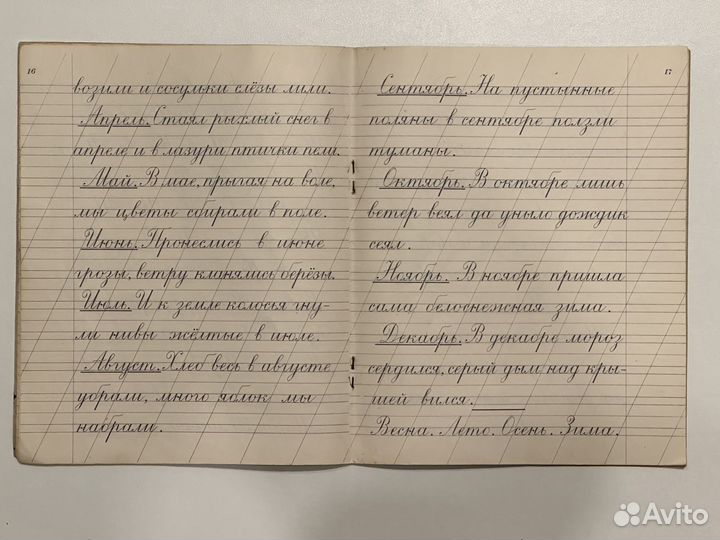 16
возили и сосульки слёзы лили.
Апрель. Стаял рыхлый снег в
апреле и в лазури птички пели.
Май. В мае, прыгая на воле,
мы цветы сбирали в поле.
Июнь. Пронеслись в июне
грозы, ветру кланялись берёзы.
Июль. И к земле колосья гну-
ли нивы жёлтые в июле.
Август. Хлеб весь в августе
убрали, много яблок мы
набрали.
17
Сентябрь. На пустынные
поляны в сентябре ползли
туманы.
Октябрь. В октябре лишь
ветер веял да уныло дождик
сеял.
Ноябрь. В ноябре пришла
сама белоснежная зима.
Декабрь. В декабре мороз
сердился, серый дым над кры-
шей вился.
Весна. Лето. Осень. Зима.
Avito